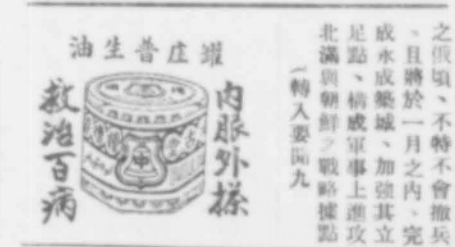 之俄頃、不特不會撤兵
、且將於一月之內、完
成永成築城、加強其立
足點、構成軍事上進攻
北滿與朝鮮之戰略據點
(轉入要聞九
罐庄普生油
內服外搽
救治百病